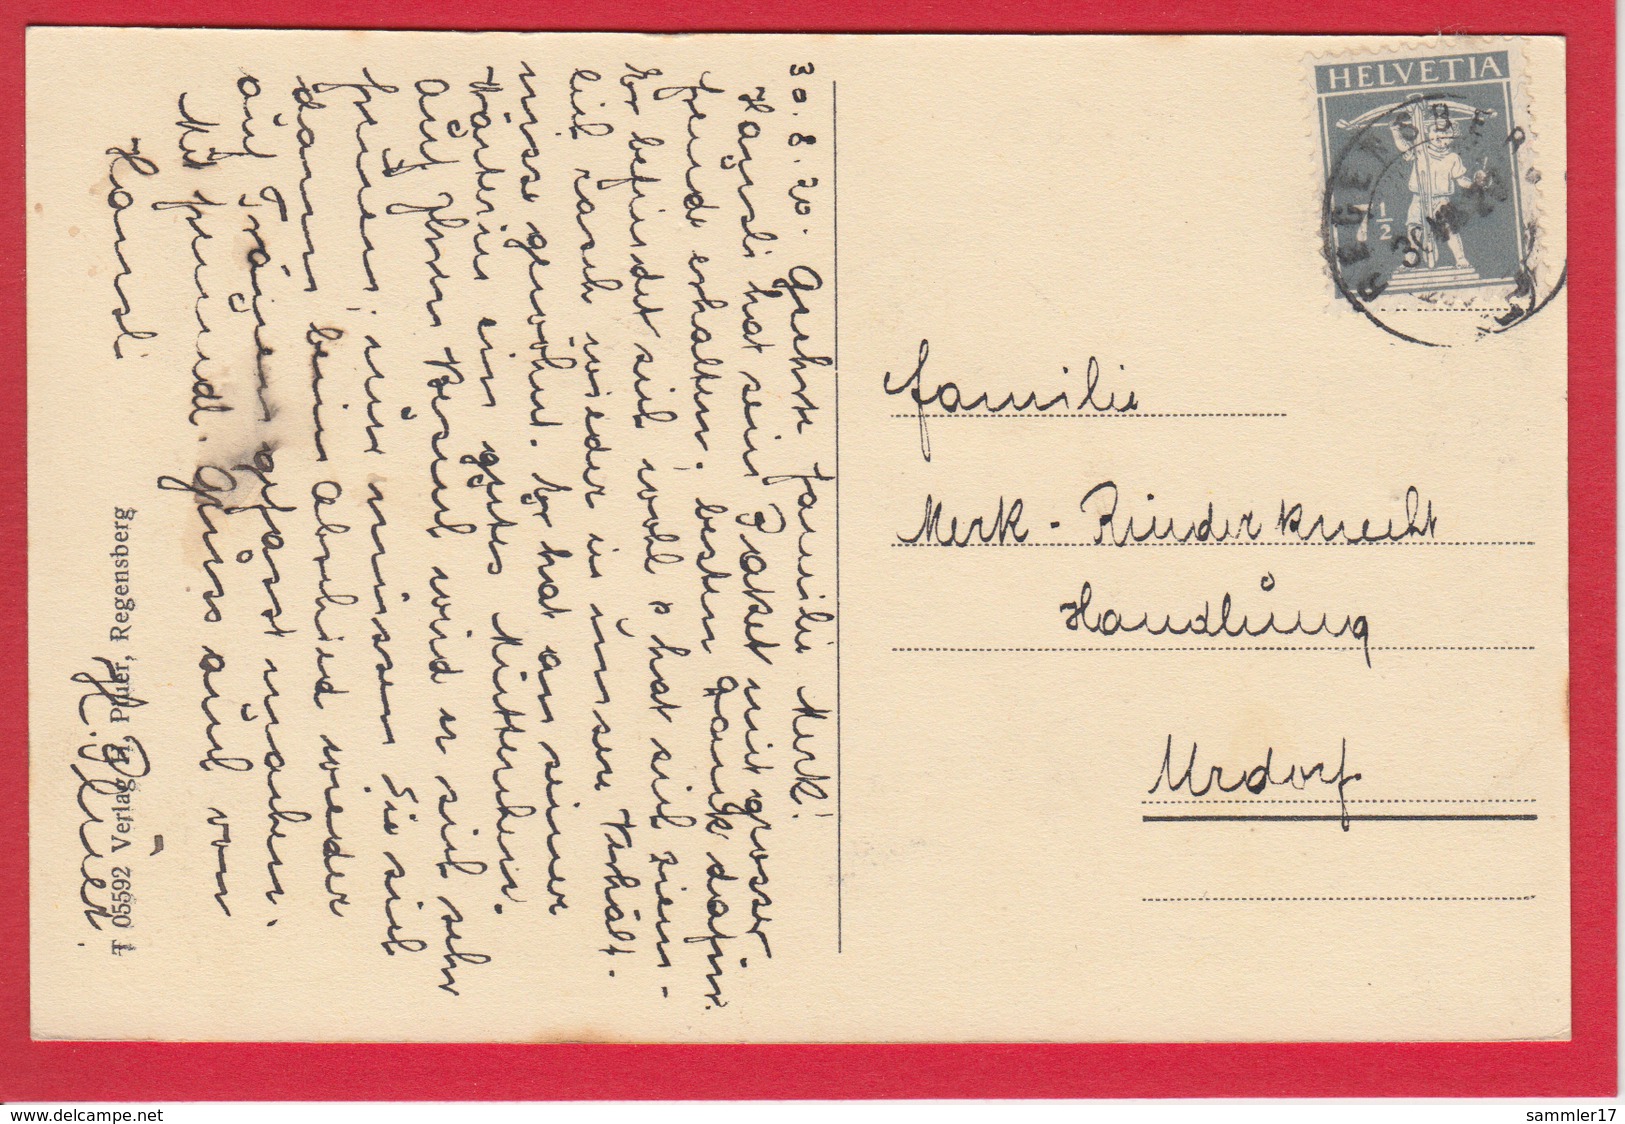 30.8.20. Geehrte Familie Merk!
Hansli hat sein Paket mit grosser
freude erhalten, besten Dank dafür.
Er befindet sich wohl & hat sich ziem-
lich rasch wieder in unsere Verhält-
nisse gewöhnt. Er hat an seiner
Wärterin ein gutes Mütterlein.
Auf Ihren Besuch wird er sich sehr
freuen, nur müssen Sie sich
dann beim Abschied wieder
auf Tränen gefasst machen.
Mit freundl. Gruss auch von
Hansli
T 05592 Verlag Pfuer, Regensberg
HELVETIA
7 1/2
REGENSBERG
Familie
Merk-Rinderknecht
Handlung
Urdorf
www.delcampe.net
sammler17